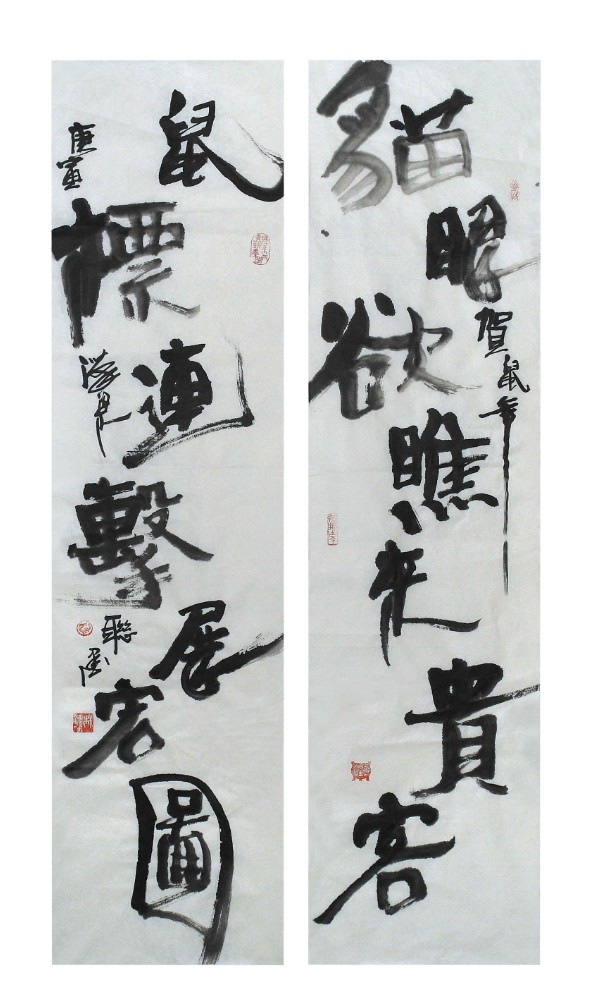 貓眼欲瞧来貴客
賀鼠年
鼠標連擊展宏圖
庚寅
聯墨